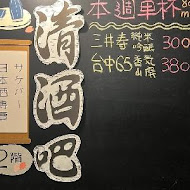 本週單杯
三井寿 純米吟釀 300
台中65 380
清酒吧
サケバー
日本酒專賣
2階